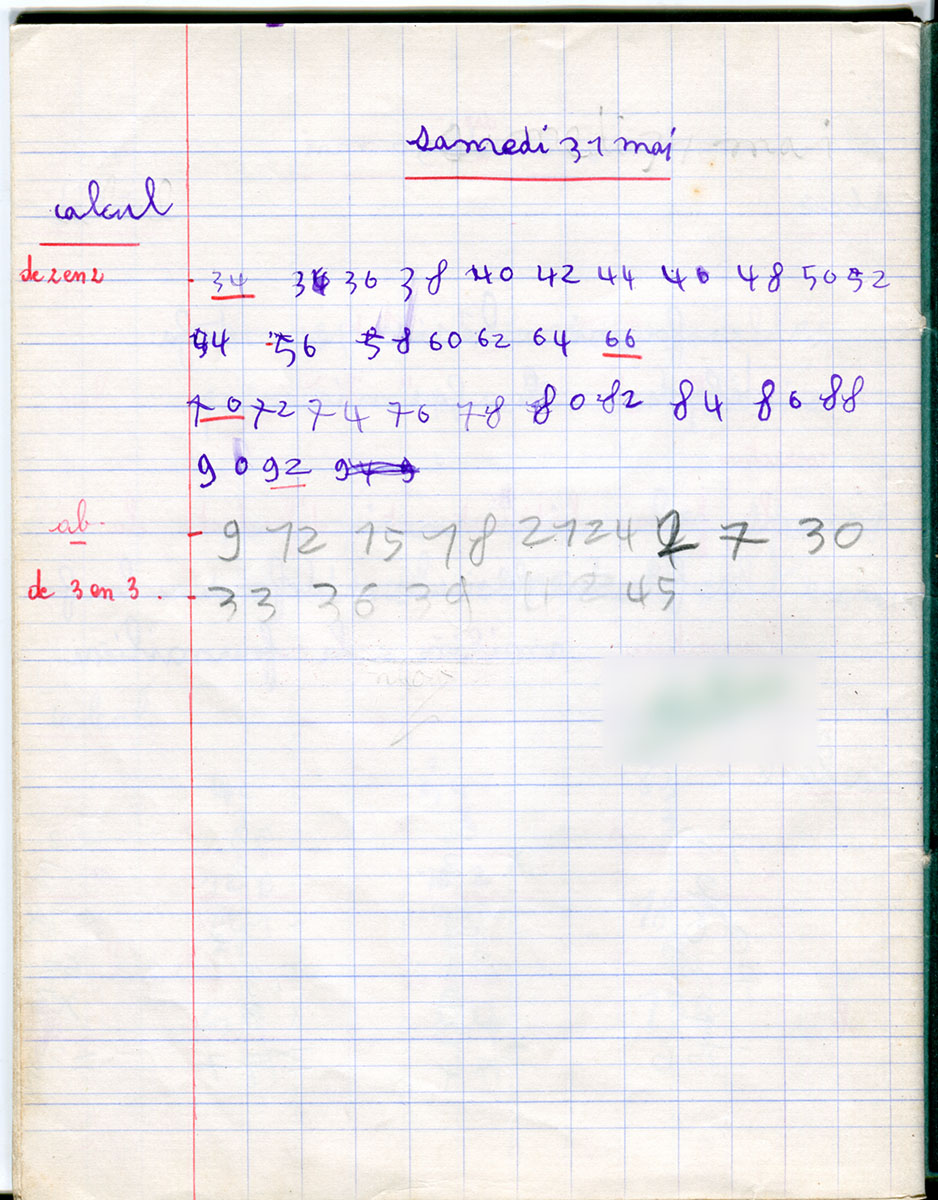 samedi 31 mai
calcul
de 2 en 2 - 34 34 36 38 40 42 44 46 48 50 52
54 56 58 60 62 64 66
70 72 74 76 78 80 82 84 86 88
90 92
ab. - 9 12 15 18 21 24 27 30
de 3 en 3. - 33 36 39 42 45